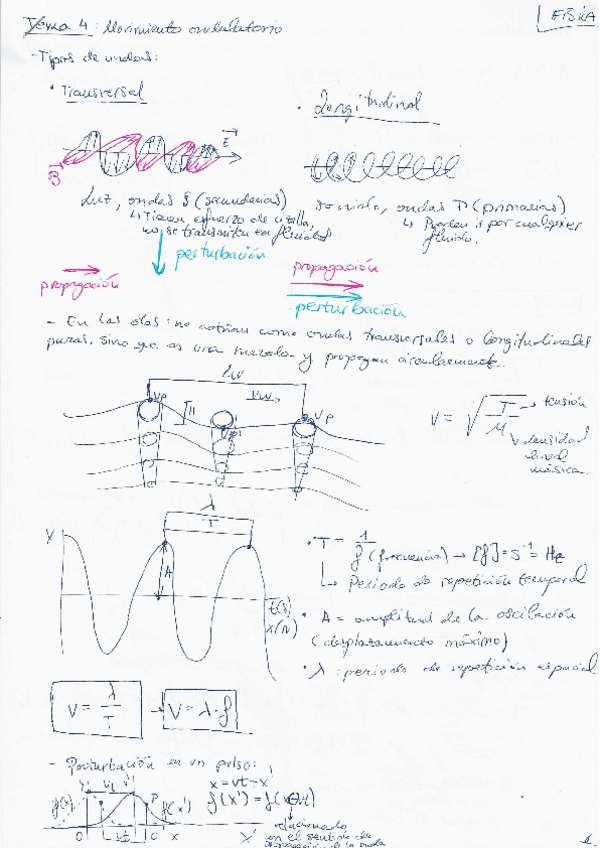 FÍSICA
Tema 4: Movimiento ondulatorio
- Tipos de ondas:
• Transversal
• Longitudinal
E
B
Luz, ondas S (secundarias)
↳ Tienen esfuerzo de cizalla,
no se transmiten en fluidos
Sonido, ondas P (primarias)
↳ Pueden ir por cualquier
fluido.
perturbación
propagación
propagación
perturbación
- En las olas: no actúan como ondas transversales o longitudinales
puras, sino q.e. es una mezcla y propagan circularmente.
Lw
Vp
Vw
H
Vp
V = √T/μ
→ tensión
densidad
lineal
másica
λ
T
X
A
t(s)
X(N)
• T = 1/f (frecuencia) → [f] = s⁻¹ = Hz
↳ Periodo de repetición temporal
• A = amplitud de la oscilación
(desplazamiento máximo)
• λ: periodo de repetición espacial
V = λ/T → V = λ·f
- Perturbación en un pulso:
f(x)
P
f(x')
0
vt
0'
x
x'
relacionado
con el sentido de
propagación de la onda
1